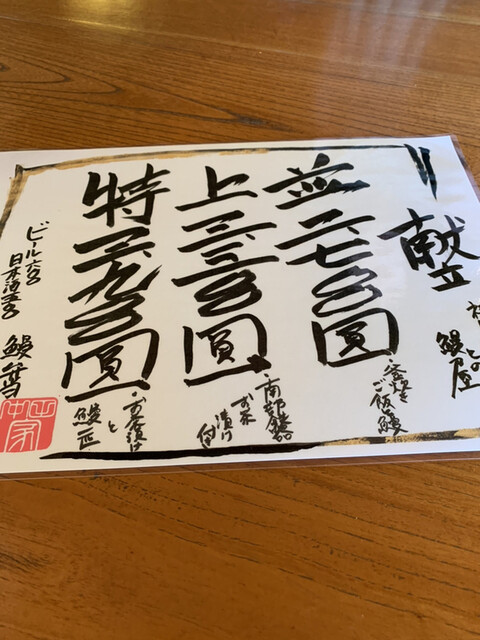 献立
鰻屋
並二、七〇〇圓
・釜炊きご飯鰻
上三、三〇〇圓
・南部鉄器
お茶漬け付
特三、九〇〇圓
・お茶漬け
と
鰻一匹
ビール六〇〇
日本酒五〇〇
鰻弁当